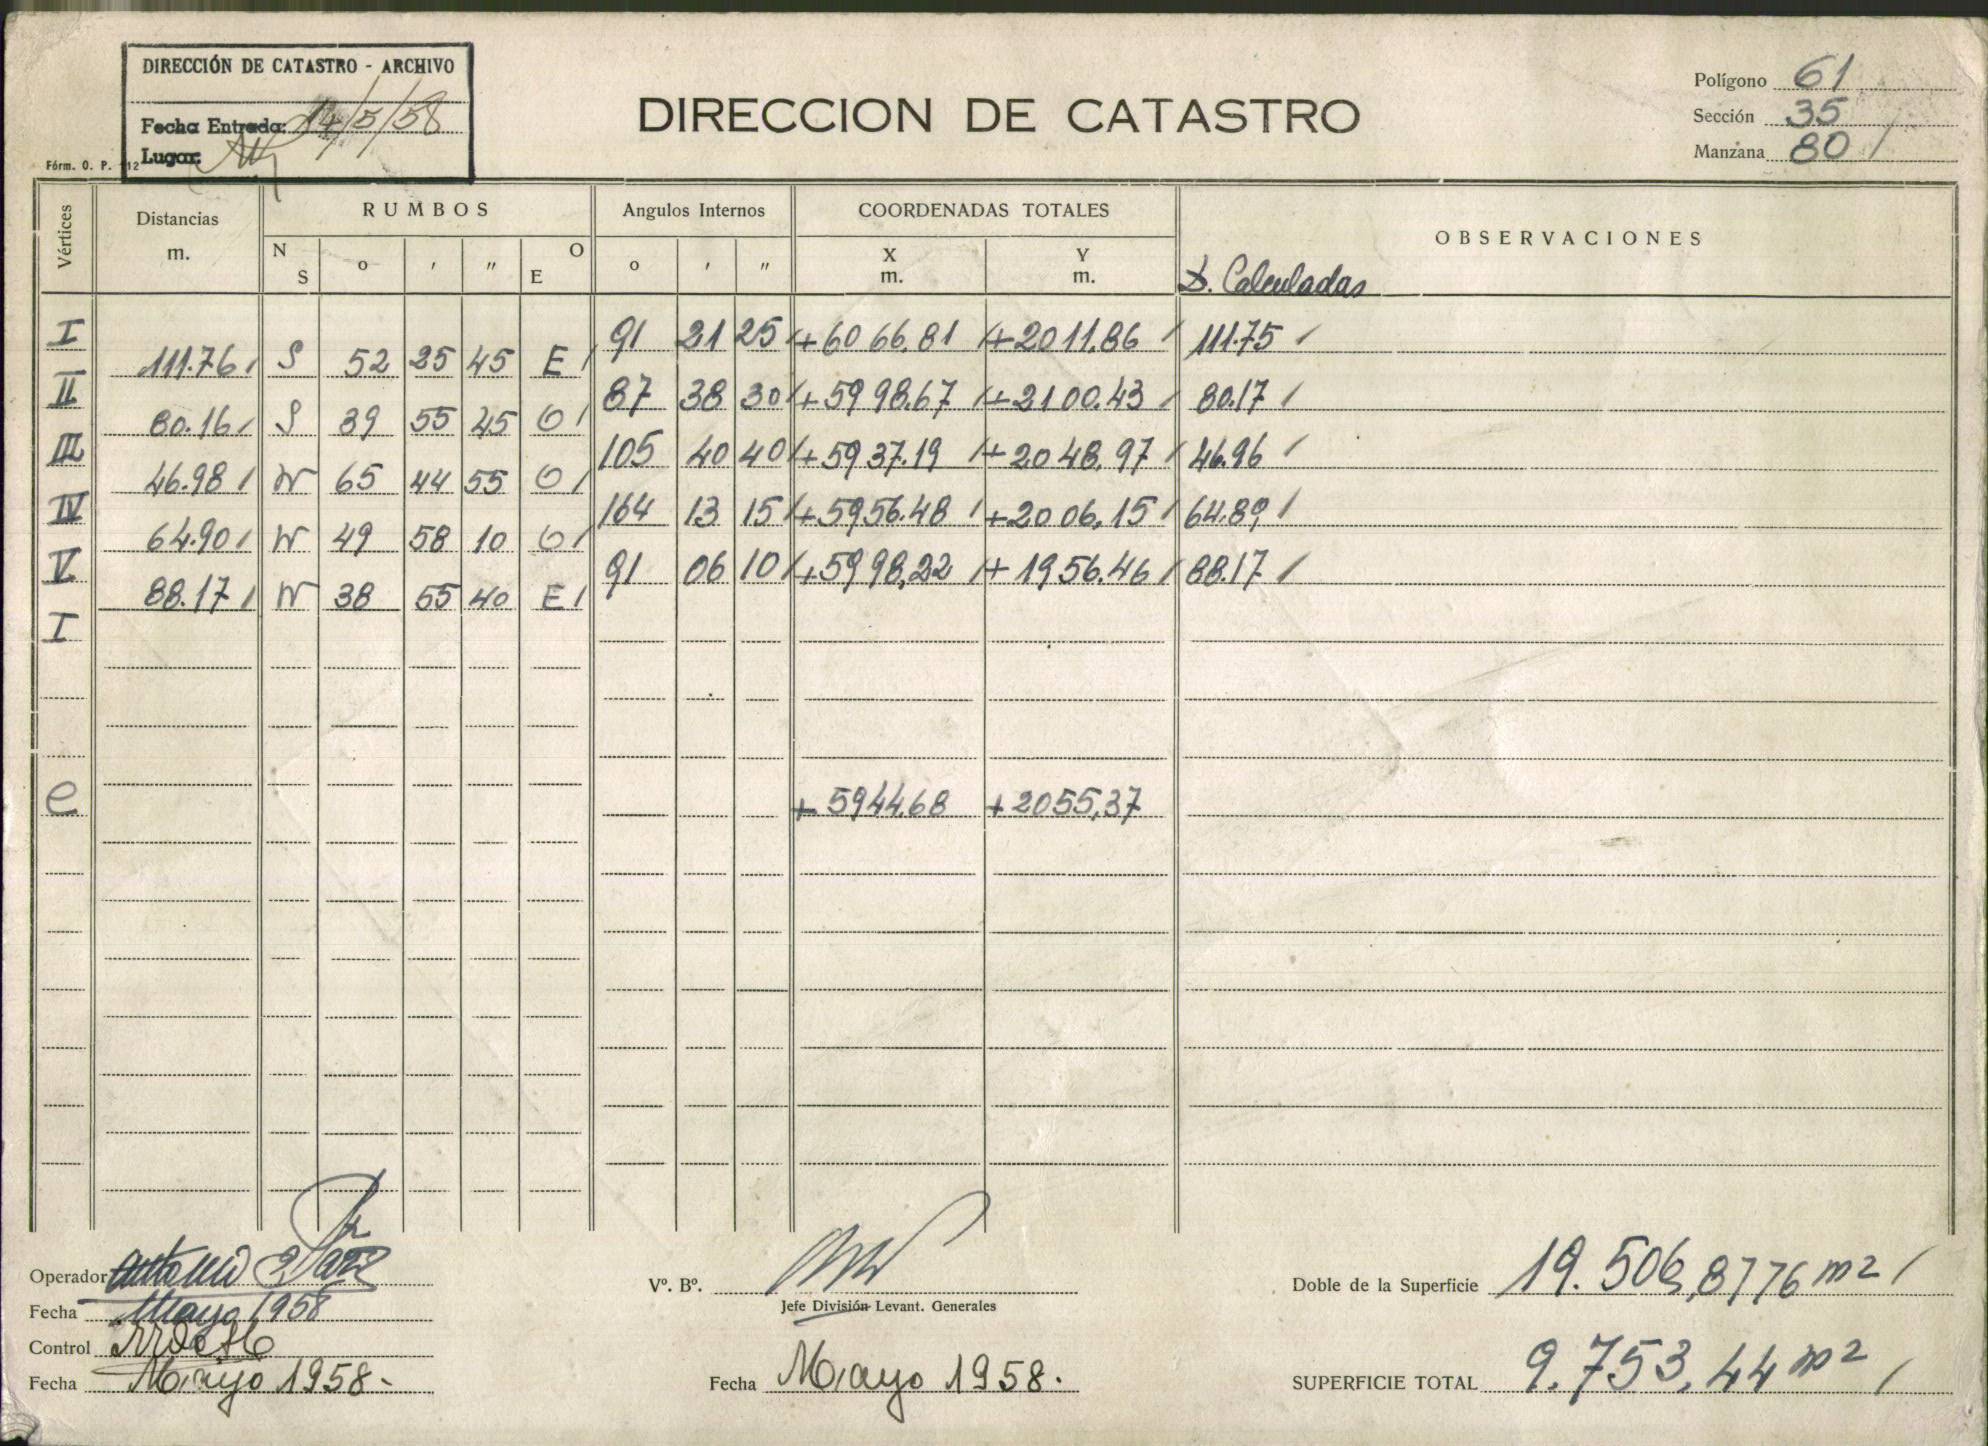 DIRECCIÓN DE CATASTRO - ARCHIVO
Fecha Entrada: 14/5/58
Lugar:
Fórm. O. P. 112
DIRECCION DE CATASTRO
Polígono 61
Sección 35
Manzana 80
Vértices Distancias m. RUMBOS Angulos Internos COORDENADAS TOTALES OBSERVACIONES
N S o ' " O E o ' " X m. Y m. D. Calculadas
I 91 21 25 +6066.81 +2011.86 111.75
111.76 S 52 25 45 E
II 87 38 30 +5998.67 +2100.43 80.17
80.16 S 39 55 45 O
III 105 40 40 +5937.19 +2048.97 46.96
46.98 N 65 44 55 O
IV 164 13 15 +5956.48 +2006.15 64.89
64.90 N 49 58 10 O
V 91 06 10 +5998,22 +1956.46 88.17
88.17 N 38 55 40 E
I
e +5944.68 +2055,37
Operador Antonio
Fecha Mayo 1958
Control
Fecha Mayo 1958-
Vº. Bº.
Jefe División Levant. Generales
Fecha Mayo 1958.
Doble de la Superficie 19.506,8776 m2
SUPERFICIE TOTAL 9.753,44 m2